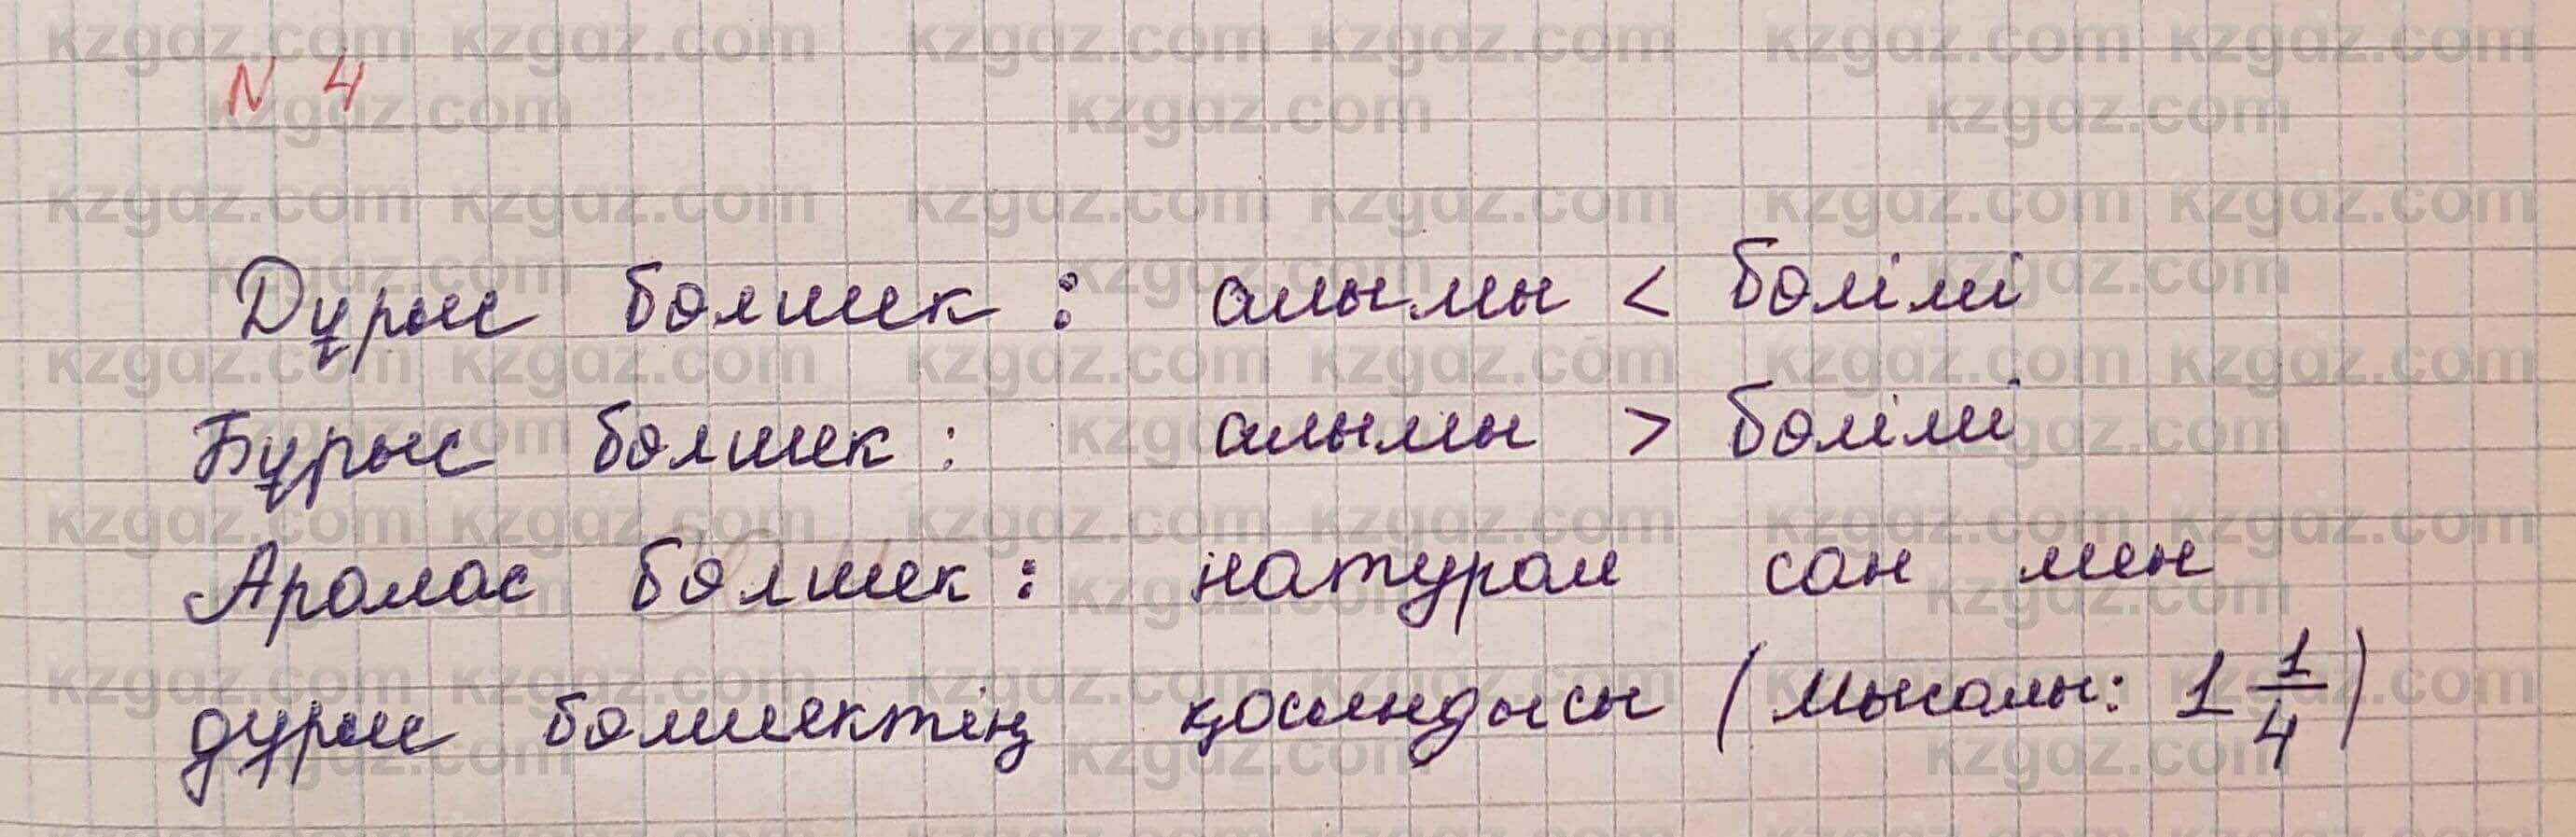 N 4
Дұрыс бөлшек : алымы < бөлімі
Бұрыс бөлшек : алымы > бөлімі
Аралас бөлшек : натурал сан мен
дұрыс бөлшектің қосындысы (Мысалы: 1 1/4)